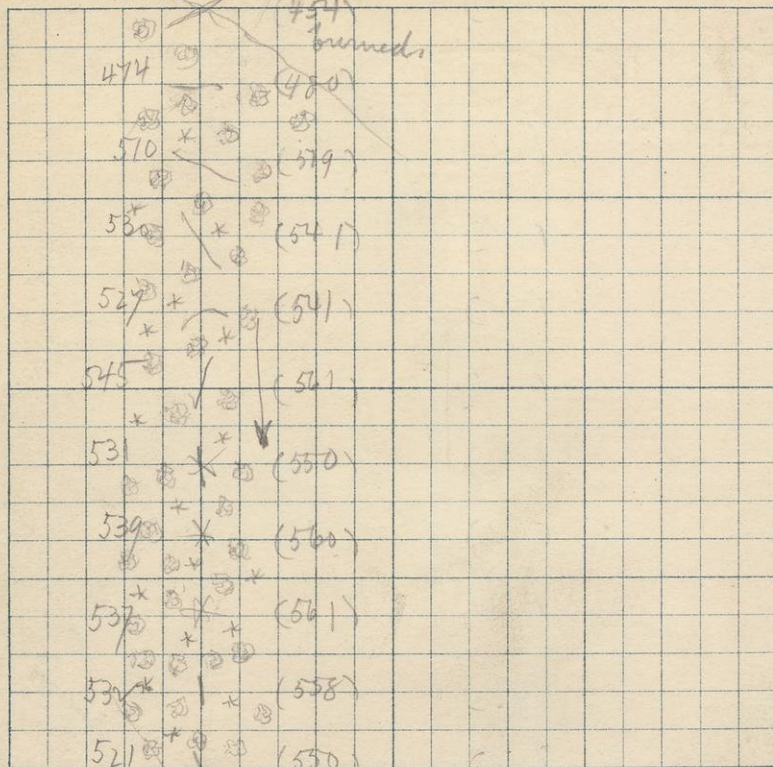 (454)
474 (480)
510 (519)
530 (541)
527 (541)
545 (561)
531 (550)
539 (560)
537 (561)
532 (558)
521 (550)